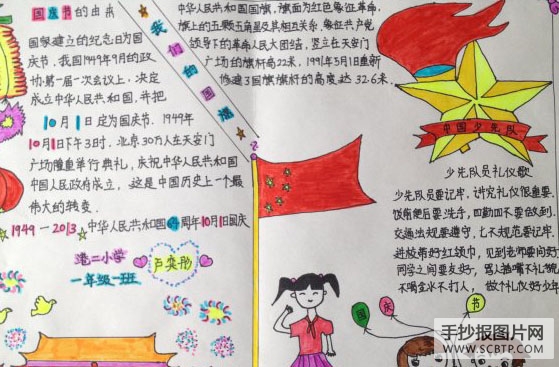 国庆节的由来
国家建立的纪念日为国
庆节,我国1949年9月的政
协第一届一次会议上,决定
成立中华人民共和国,并把
10月1日定为国庆节,1949年
10月1日下午3时,北京30万人在天安门
广场隆重举行典礼,庆祝中华人民共和国
中国人民政府成立,这是中国历史上一个最
伟大的转变.
1949-2013 中华人民共和国64周年10月1日国庆
港二小学
一年级一班
我们的国旗
中华人民共和国国旗,旗面为红色象征革命.
旗上的五颗五角星及其相互关系,象征共产党
领导下的革命人民大团结,竖立在天安门
广场的旗杆高22米,1991年5月1日重新
修建3国旗旗杆的高度达32.6米.
中国少先队
少先队员礼仪歌
少先队员要记牢,讲究礼仪很重要.
饭前便后要洗手,四勤四不要做到.
交通法规要遵守,七不规范要记牢.
进校带好红领巾,见到老师要问好
同学之间要友好,骂人猫嘴不礼貌
不喝生水不打人,做个礼仪好少年
国
庆
节
手抄报图片网
WWW.SCBTP.COM